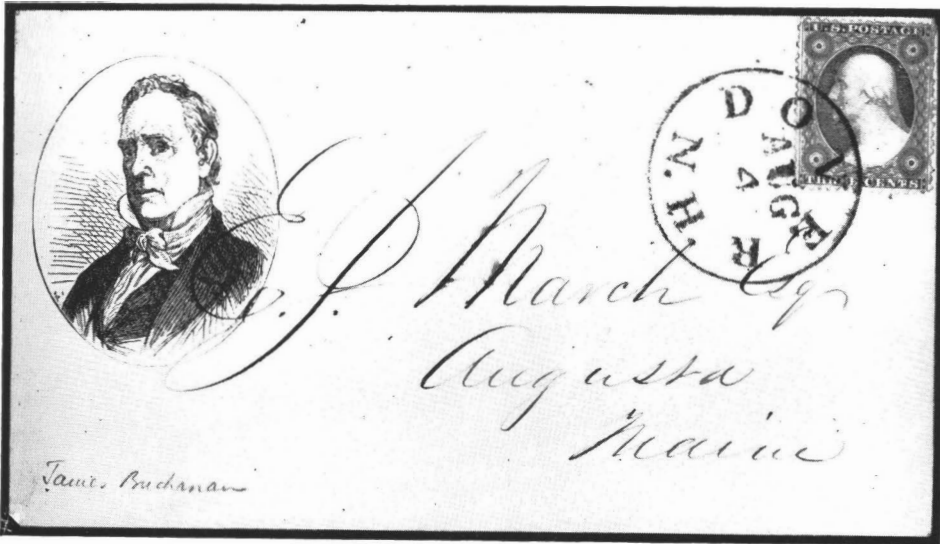 U.S. POSTAGE
THREE CENTS
DOVER N.H.
AUG
4
E. J. March Esq
Augusta
Maine
James Buchanan